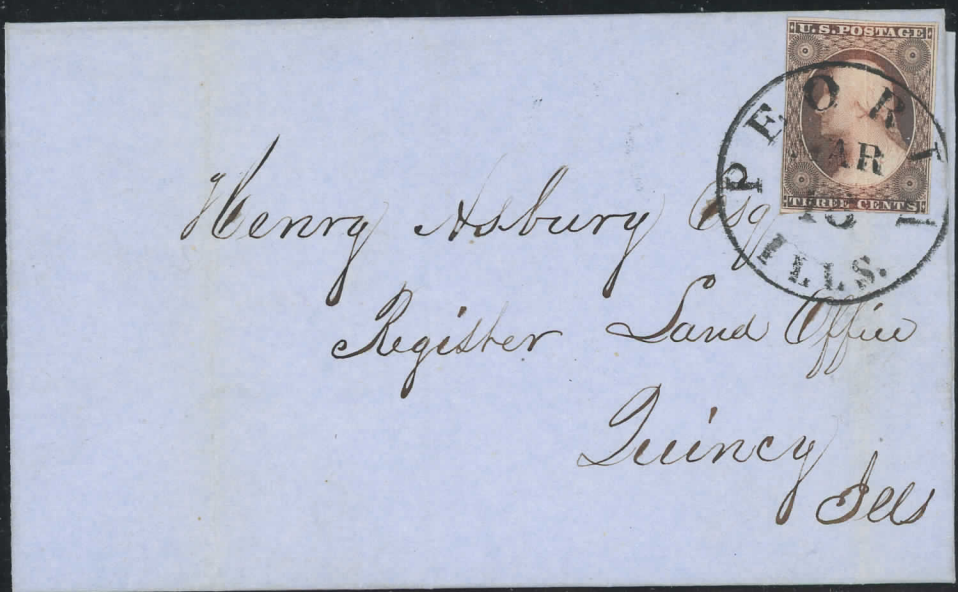 U.S. POSTAGE
THREE CENTS
PEORIA
ILLS.
Henry Asbury Esq
Register Land Office
Quincy
Ills